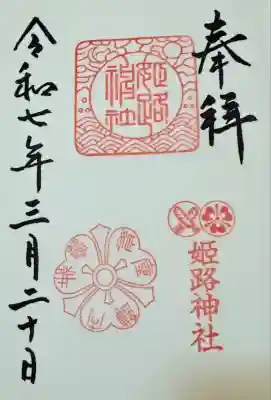 奉拝
姫路神社
姫路神社
令和七年三月二十日